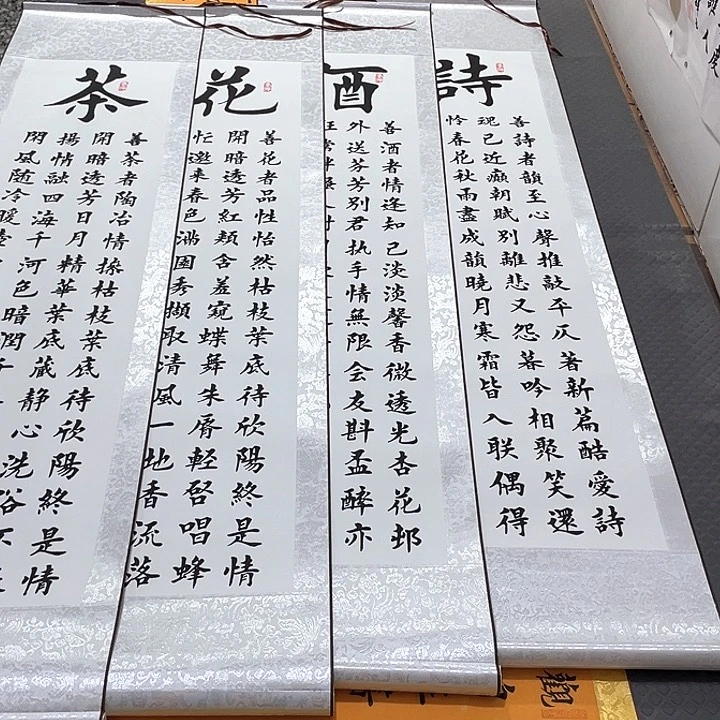 詩
善詩者韻至心聲推敲平仄著新篇酷愛詩
魂已近癲朝賦別離悲又怨暮吟相聚笑還
怜春花秋雨盡成韻曉月寒霜皆入联偶得
酒
善酒者情逢知己淡淡馨香微透光杏花邨
外送芬芳別君执手情無限会友斟盃醉亦
狂常伴
花
善花者品性怡然枯枝葉底待欣陽終是情
開暗透芳紅頰含羞窺蝶舞朱脣輕啓唱蜂
忙邀来春色滿園秀擷取清風一地香流落
茶
善茶者陶冶情操枯枝葉底待欣陽終是情
開暗透芳日月精華葉底蔵静心洗俗不
揚情融四海千河色暗潤
閑風随冷暖